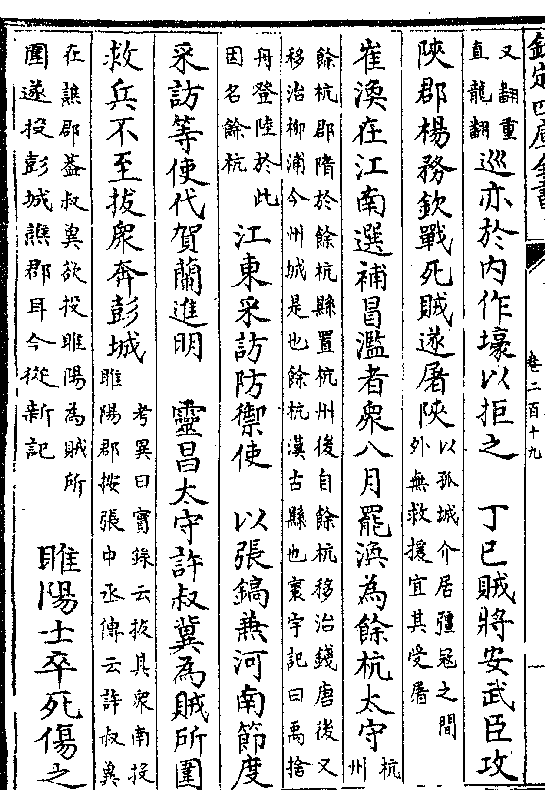 欽定四庫全書
卷二百十九
又翻重
直龍翻
巡亦於内作壕以拒之　丁巳賊將安武臣攻
陜郡楊務欽戰死賊遂屠陜
以孤城介居彊寇之間
外無救援宜其受屠
崔渙在江南選補冒濫者衆八月罷渙為餘杭太守
杭
州
餘杭郡隋於餘杭縣置杭州後自餘杭移治錢唐後又
移治柳浦今州城是也餘杭漢古縣也寰宇記曰禹捨
舟登陸於此
因名餘杭
江東采訪防禦使　以張鎬兼河南節度
采訪等使代賀蘭進明　靈昌太守許叔冀為賊所圍
救兵不至拔衆奔彭城
考異曰實錄云拔其衆南投
睢陽郡按張中丞傳云許叔冀
在譙郡葢叔冀欲投睢陽為賊所
圍遂投彭城譙郡耳今從新記
睢陽士卒死傷之